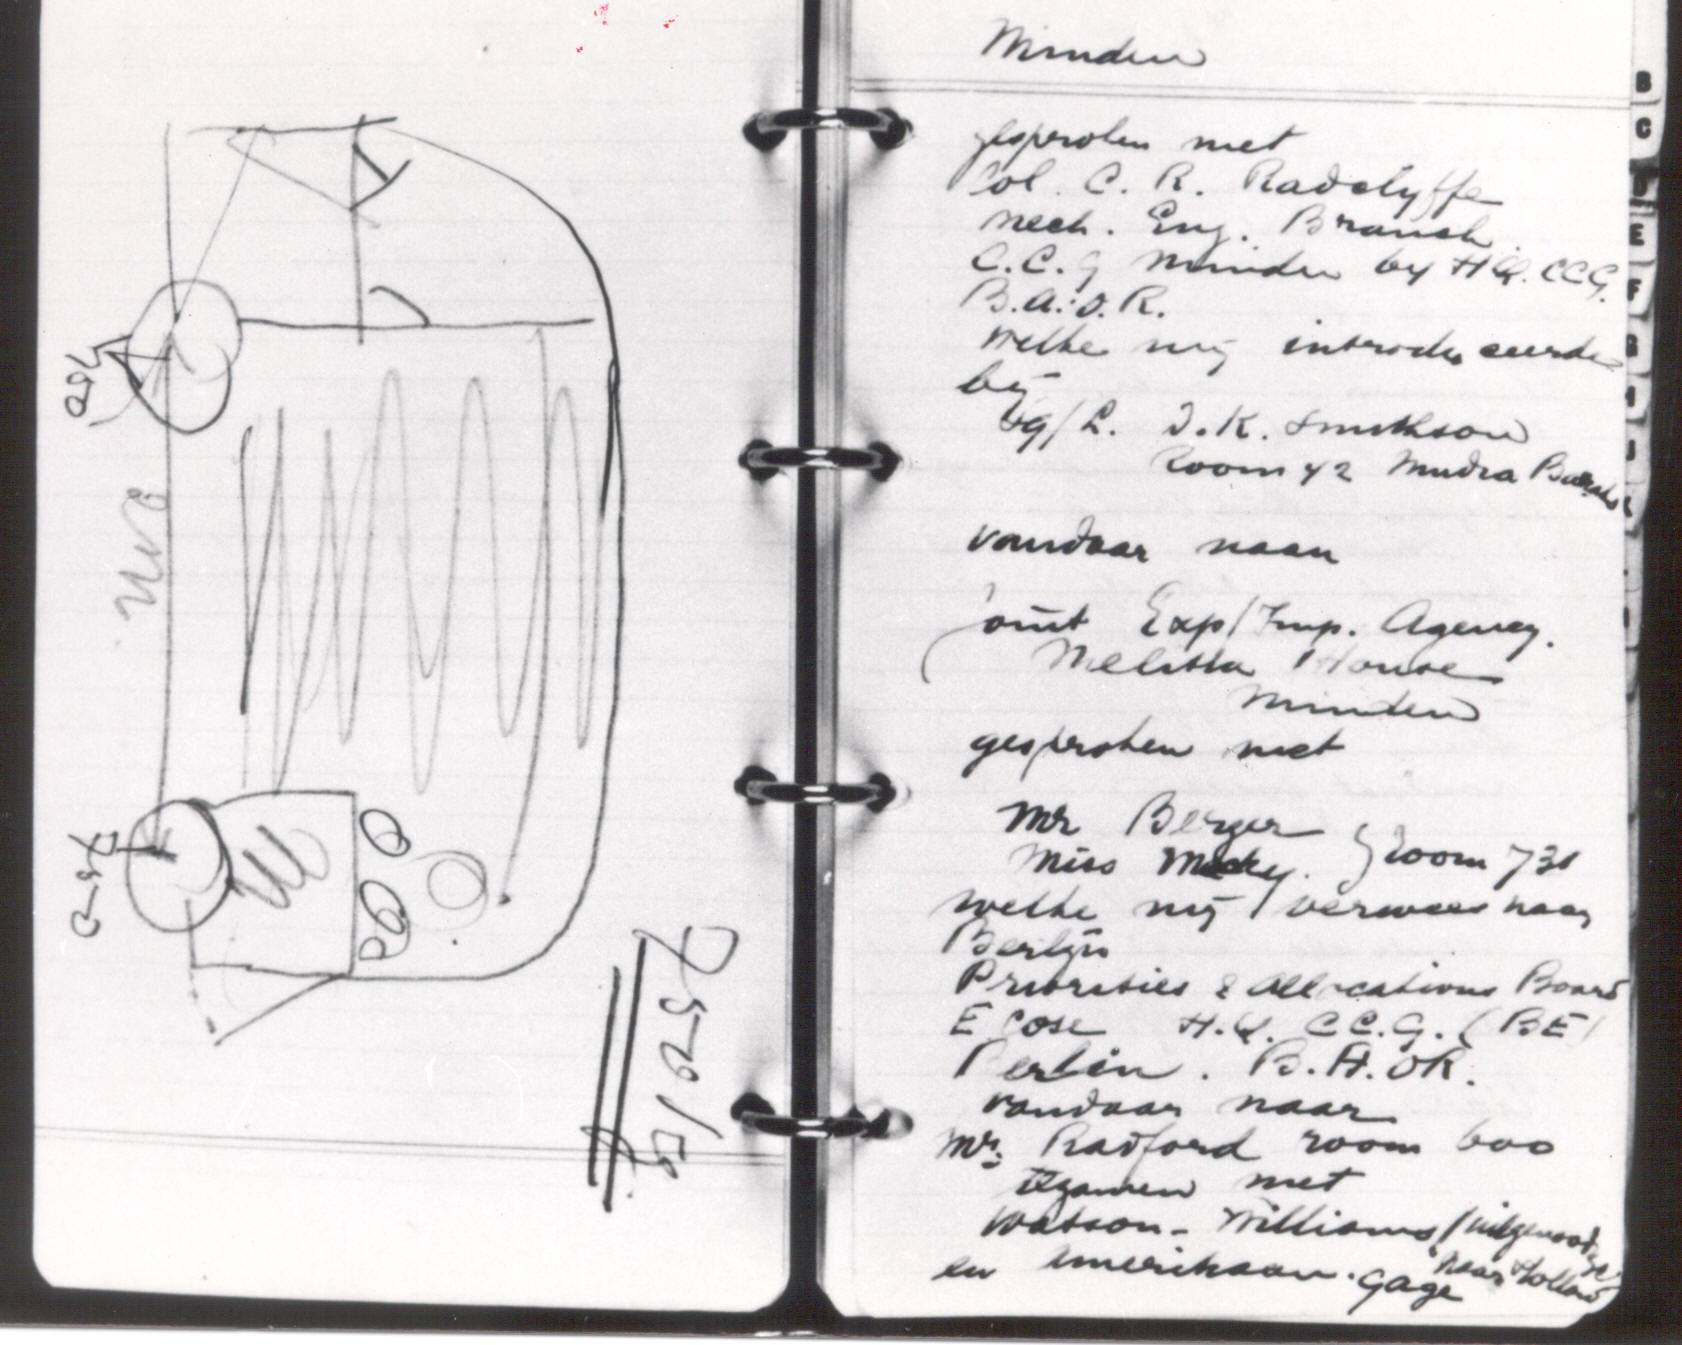 Minden
gesproken met
Col. C. R. Radclyffe
Mech. Eng. Branch.
C.C.G Minden by H.Q. CCG.
B.A.O.R.
welke mij introduceerde
bij
D.K. Smithson
Room 42 Mudra
vandaar naar
Joint Exp/Imp. Agency.
Melitta House
Minden
gesproken met
Mr Berger
Miss } Room 731
welke mij verwees naar
Berlijn
Priorities & Allocations Board
Ecose H.Q. C.C.G. (BE)
Berlin. B.A.OR.
vandaar naar
Mr. Radford room 600
tezamen met
Watson-Williams /
en Amerikaan. Gage
naar Holland
B
C
D
E
F
G
H
J